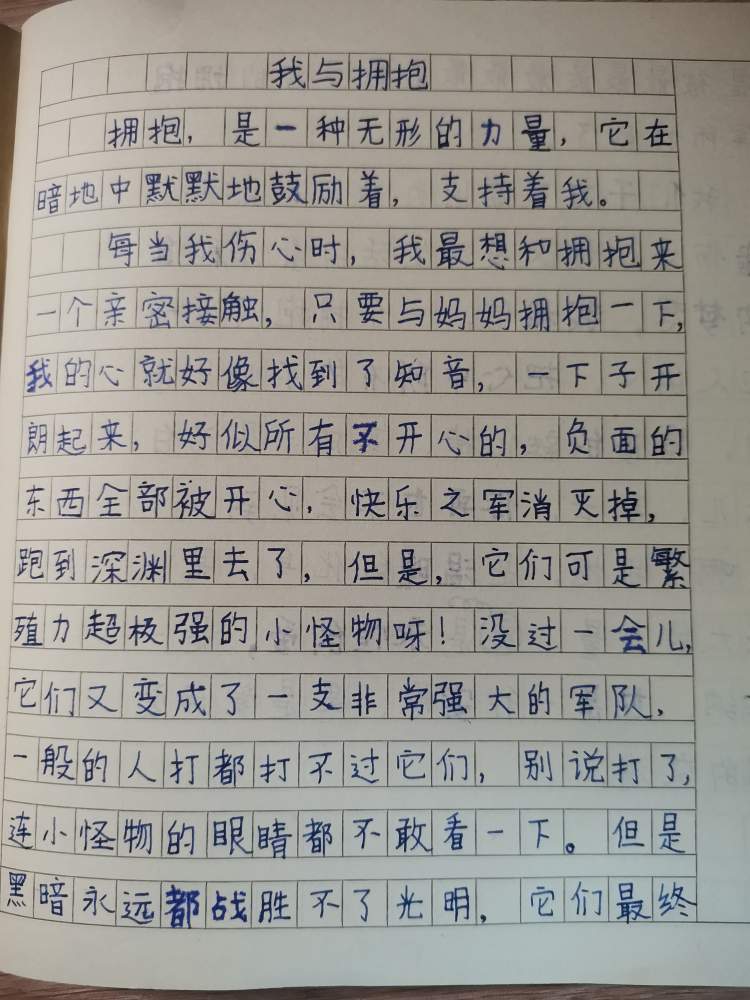 我与拥抱
拥抱，是一种无形的力量，它在
暗地中默默地鼓励着，支持着我。
每当我伤心时，我最想和拥抱来
一个亲密接触，只要与妈妈拥抱一下，
我的心就好像找到了知音，一下子开
朗起来，好似所有不开心的，负面的
东西全部被开心，快乐之军消灭掉，
跑到深渊里去了，但是，它们可是繁
殖力超极强的小怪物呀！没过一会儿，
它们又变成了一支非常强大的军队，
一般的人打都打不过它们，别说打了，
连小怪物的眼睛都不敢看一下。但是
黑暗永远都战胜不了光明，它们最终